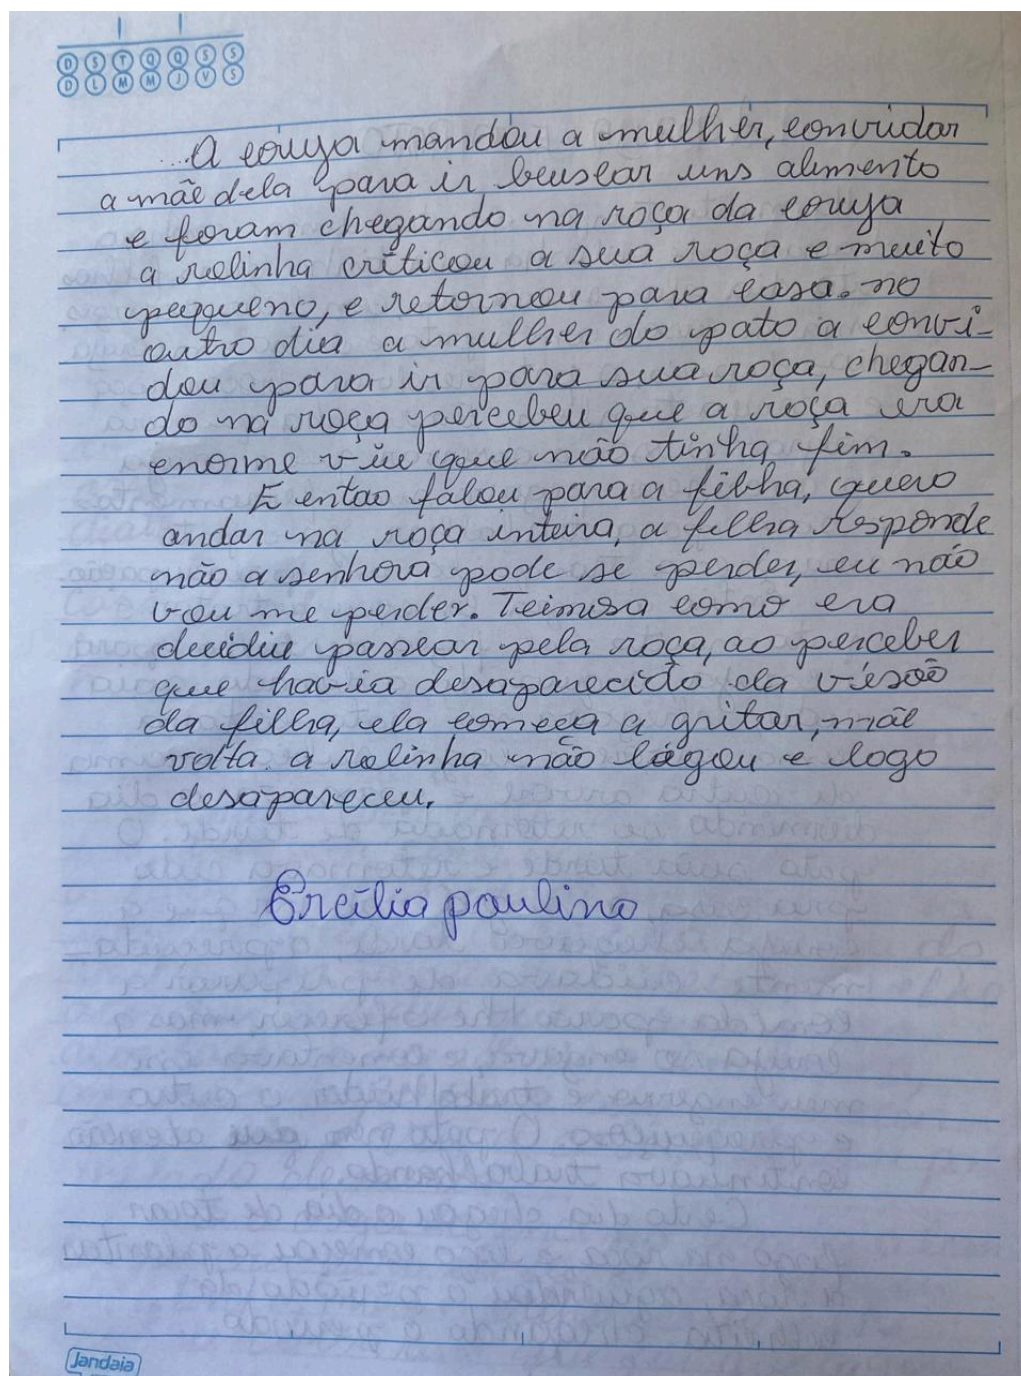 D S T Q Q S S
D L M M J V S
...A coruja mandou a mulher, convidar
a mãe dela para ir beuscar uns alimento
e foram chegando na roça da coruja
a rolinha criticou a sua roça e muito
pequeno, e retornou para casa. no
outro dia a mulher do pato a convi-
dou para ir para sua roça, chegan-
do na roça percebeu que a roça era
enorme viu que não tinha fim.
E entao falou para a filha, quero
andar na roça inteira, a filha responde
não a senhora pode se perder, eu não
vou me perder. Teimosa como era
decidiu passear pela roça, ao perceber
que havia desaparecido da visão
da filha, ela começa a gritar, mãe
volta. a rolinha não ligou e logo
desapareceu.
Ercília paulino
Jandaia